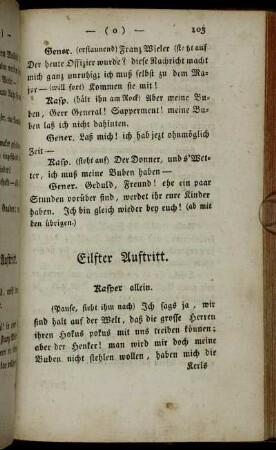 — ( o ) — 103
Gener. (erstaunend) Franz Wieler (steht auf
Der heute Offizier wurde? diese Nachricht macht
mich ganz unruhig; ich muß selbst zu dem Ma-
jor — (will fort) Kommen sie mit!
Kasp. (hält ihn am Rock) Aber meine Bu-
ben, Herr General! Sapperment! meine Bu-
ben laß ich nicht dahinten.
Gener. Laß mich! ich hab jezt ohnmöglich
Zeit —
Kasp. (steht auf) Der Donner, und s'Wet-
ter, ich muß meine Buben haben —
Gener. Geduld, Freund! ehe ein paar
Stunden vorüber sind, werdet ihr eure Kinder
haben. Ich bin gleich wieder bey euch! (ab mit
den übrigen.)
Eilfter Auftritt.
Kasper allein.
(Pause, sieht ihm nach) Ich sags ja, wir
sind halt auf der Welt, daß die grosse Herren
ihren Hokus pokus mit uns treiben können;
aber der Henker! man wird mir doch meine
Buben nicht stehlen wollen, haben mich die
Kerls